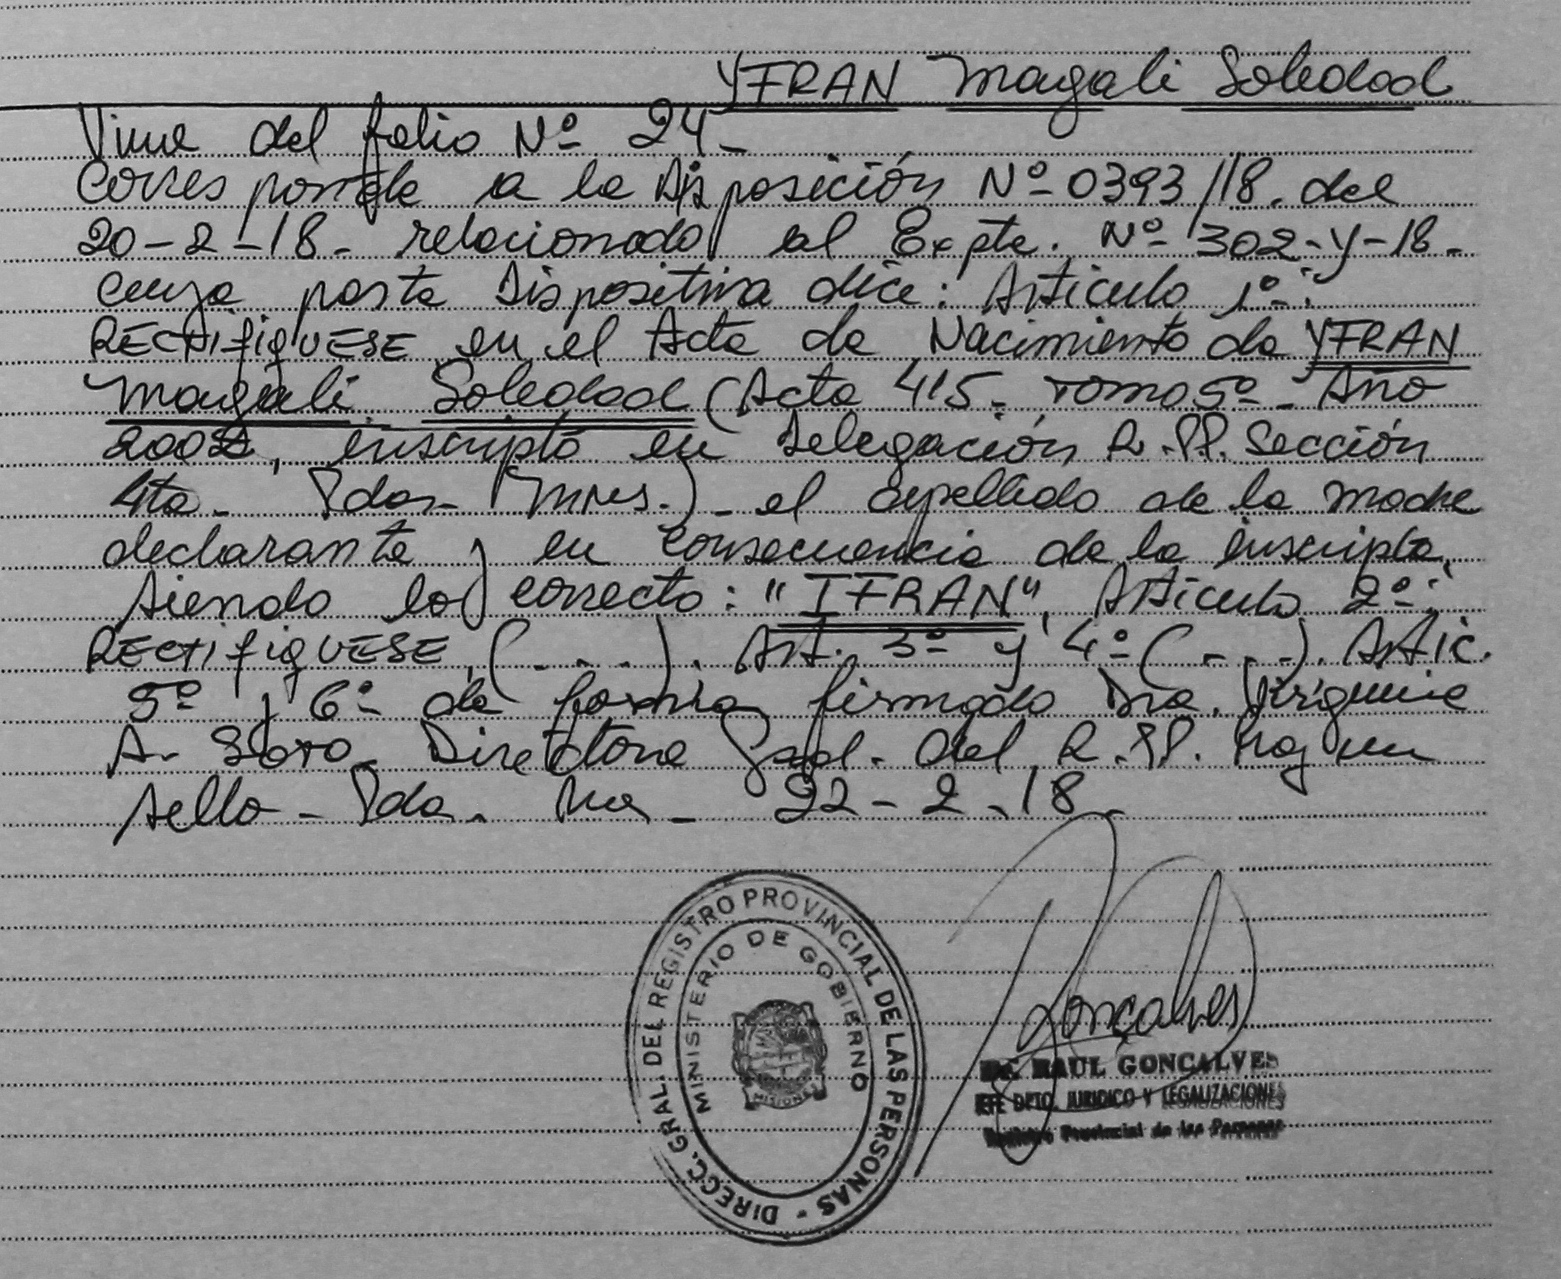 YFRAN Magali Soledad
Viene del folio Nº 24-
Corresponde a la Disposición Nº 0393/18. del
20-2-18- relacionado al Expte. Nº 302-Y-18-
cuya parte Dispositiva dice: Articulo 1º:
RECTIFIQUESE en el Acta de Nacimiento de YFRAN
Magali Soledad (Acta 415- Tomo 5º- Año
2002, inscripta en Delegación R.PP. Sección
4ta- Pdas- Mnes.)- el apellido de la madre
declarante y en consecuencia de la inscripta,
siendo lo correcto: "IFRAN", Articulo 2º:
RECTIFIQUESE (....). Art. 3º y 4º (...). Artic.
5º y 6º de forma firmado Dra.
A. Soto- Directora Gral. del R.PP. hay un
sello- Pdas. Mnes- 22-2-18-
DIRECC. GRAL. DEL REGISTRO PROVINCIAL DE LAS PERSONAS -
MINISTERIO DE GOBIERNO
MISIONES
Goncalves
RAUL GONCALVES
JEFE DPTO. JURIDICO Y LEGALIZACIONES
Registro Provincial de las Personas